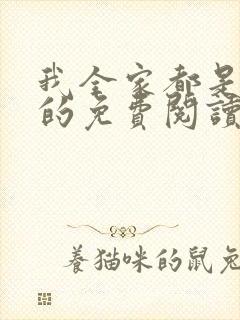 我全家都是
的免費閱讀
養貓咪的鼠兔